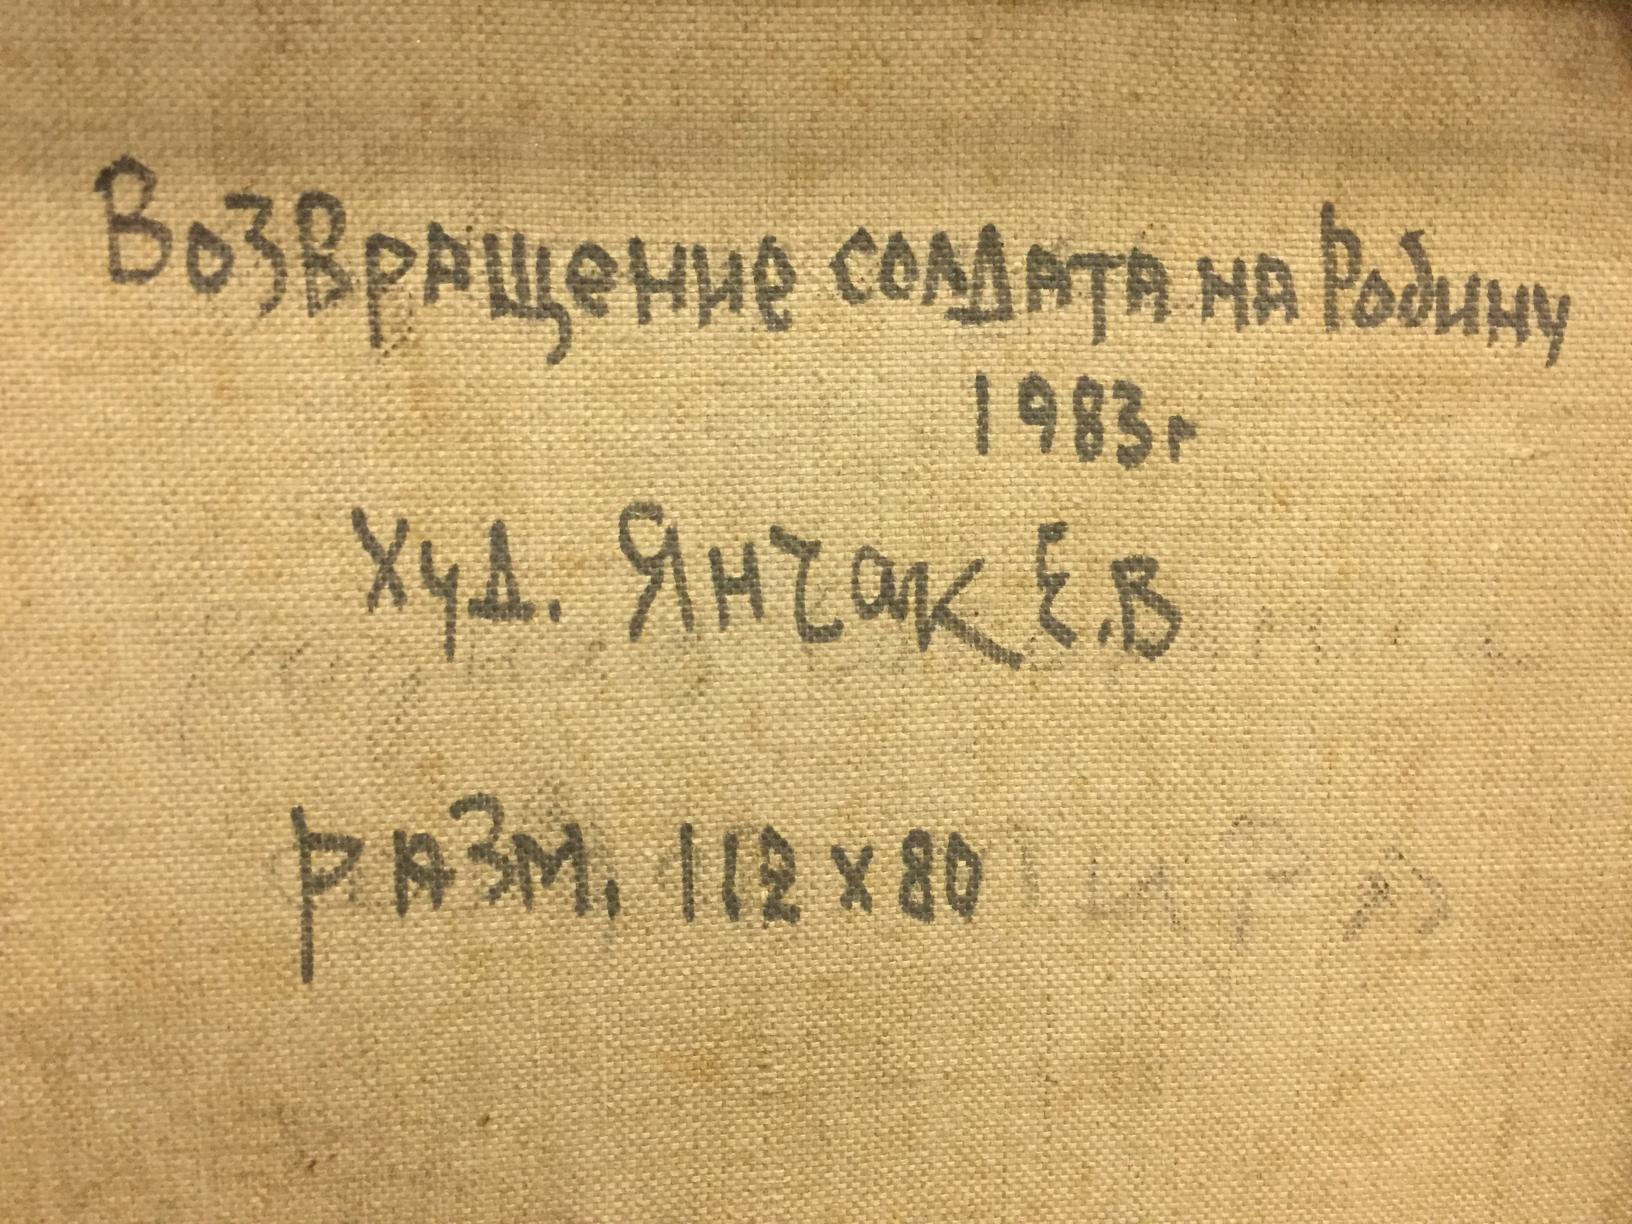 Возвращение солдата на Родину
1983г
Худ. Янчак Е.В
разм. 112 x 80